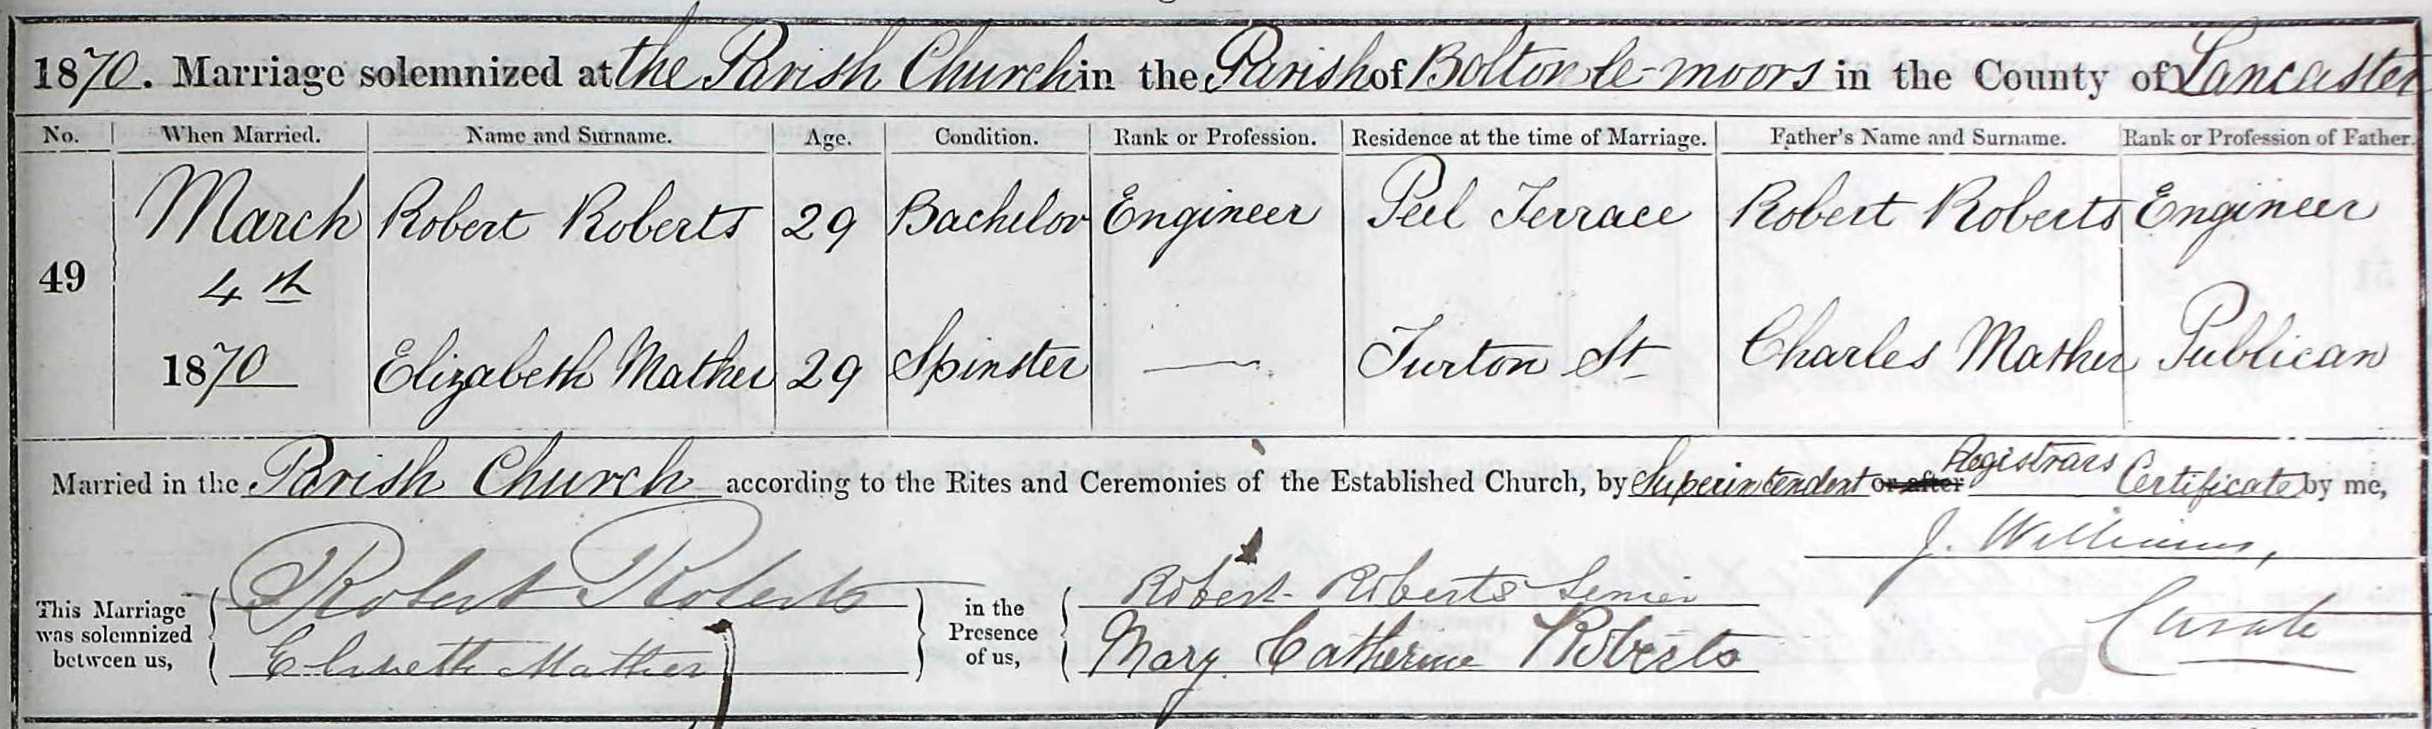 1870. Marriage solemnized at the Parish Church in the Parish of Bolton-le-moors in the County of Lancaster
No. When Married. Name and Surname. Age. Condition. Rank or Profession. Residence at the time of Marriage. Father's Name and Surname. Rank or Profession of Father.
March Robert Roberts 29 Bachelor Engineer Peel Terrace Robert Roberts Engineer
49 4th
1870 Elizabeth Mather 29 Spinster — Turton St Charles Mather Publican
Registrars
Married in the Parish Church according to the Rites and Ceremonies of the Established Church, by Superintendent or after Certificate by me,
J. Williams,
Robert Roberts Robert Roberts Senior
This Marriage was solemnized between us, in the Presence of us, Curate
Mather Mary Catherine Roberts